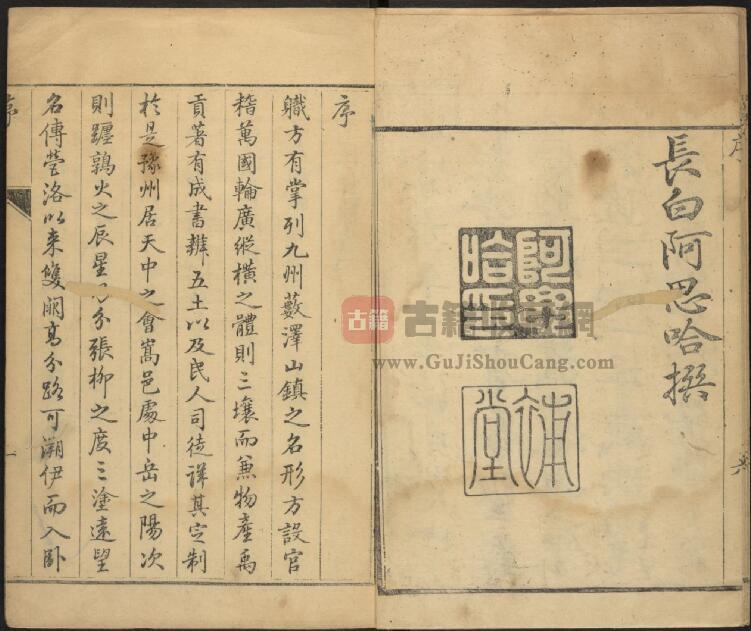 長白阿思哈撰
阿思哈印
補堂
序
職方有掌列九州藪澤山鎮之名形方設官
稽萬國輪廣縱橫之體則三壤而兼物產禹
貢著有成書辨五土以及民人司徒詳其定制
於是豫州居天中之會嵩邑處中岳之陽次
則躔鶉火之辰星乃分張柳之度三塗遠望
名傳營洛以来雙闕高分路可溯伊而入卧
序
一
古籍
古籍 网
www.GuJiShouCang.com